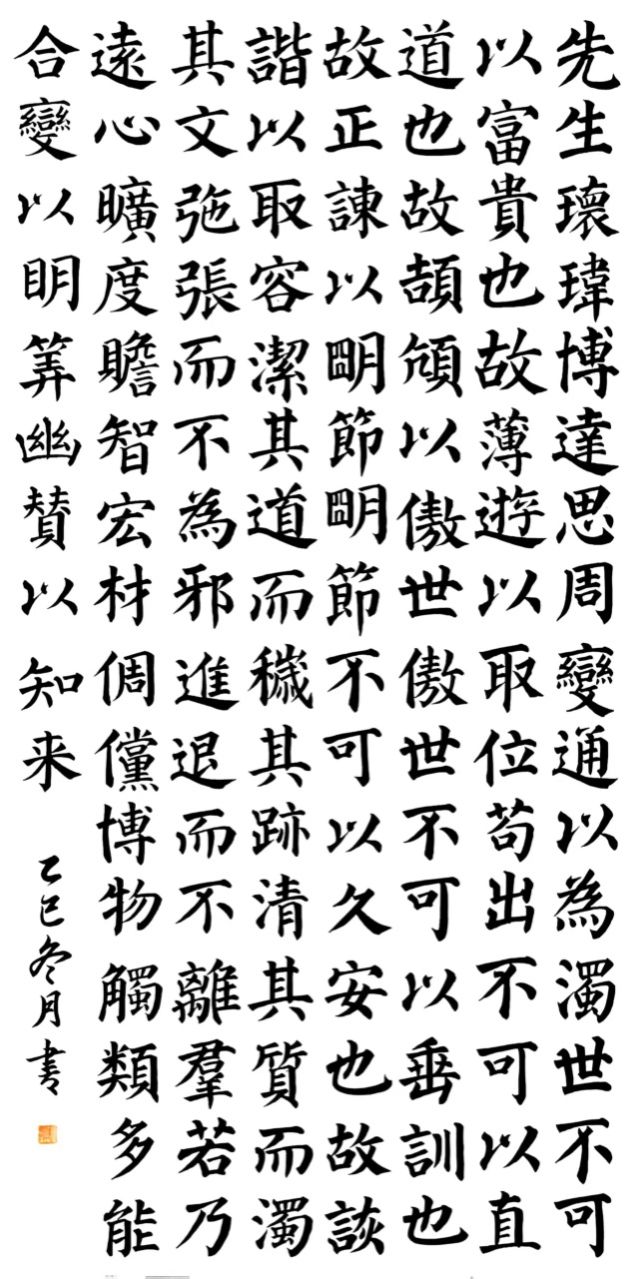 先生瓌瑋博達思周變通以為濁世不可
以富貴也故薄遊以取位苟出不可以直
道也故頡頏以傲世傲世不可以垂訓也
故正諫以明節明節不可以久安也故談
諧以取容潔其道而穢其跡清其質而濁
其文弛張而不為邪進退而不離羣若乃
遠心曠度贍智宏材倜儻博物觸類多能
合變以明筭幽贊以知来
乙巳冬月書